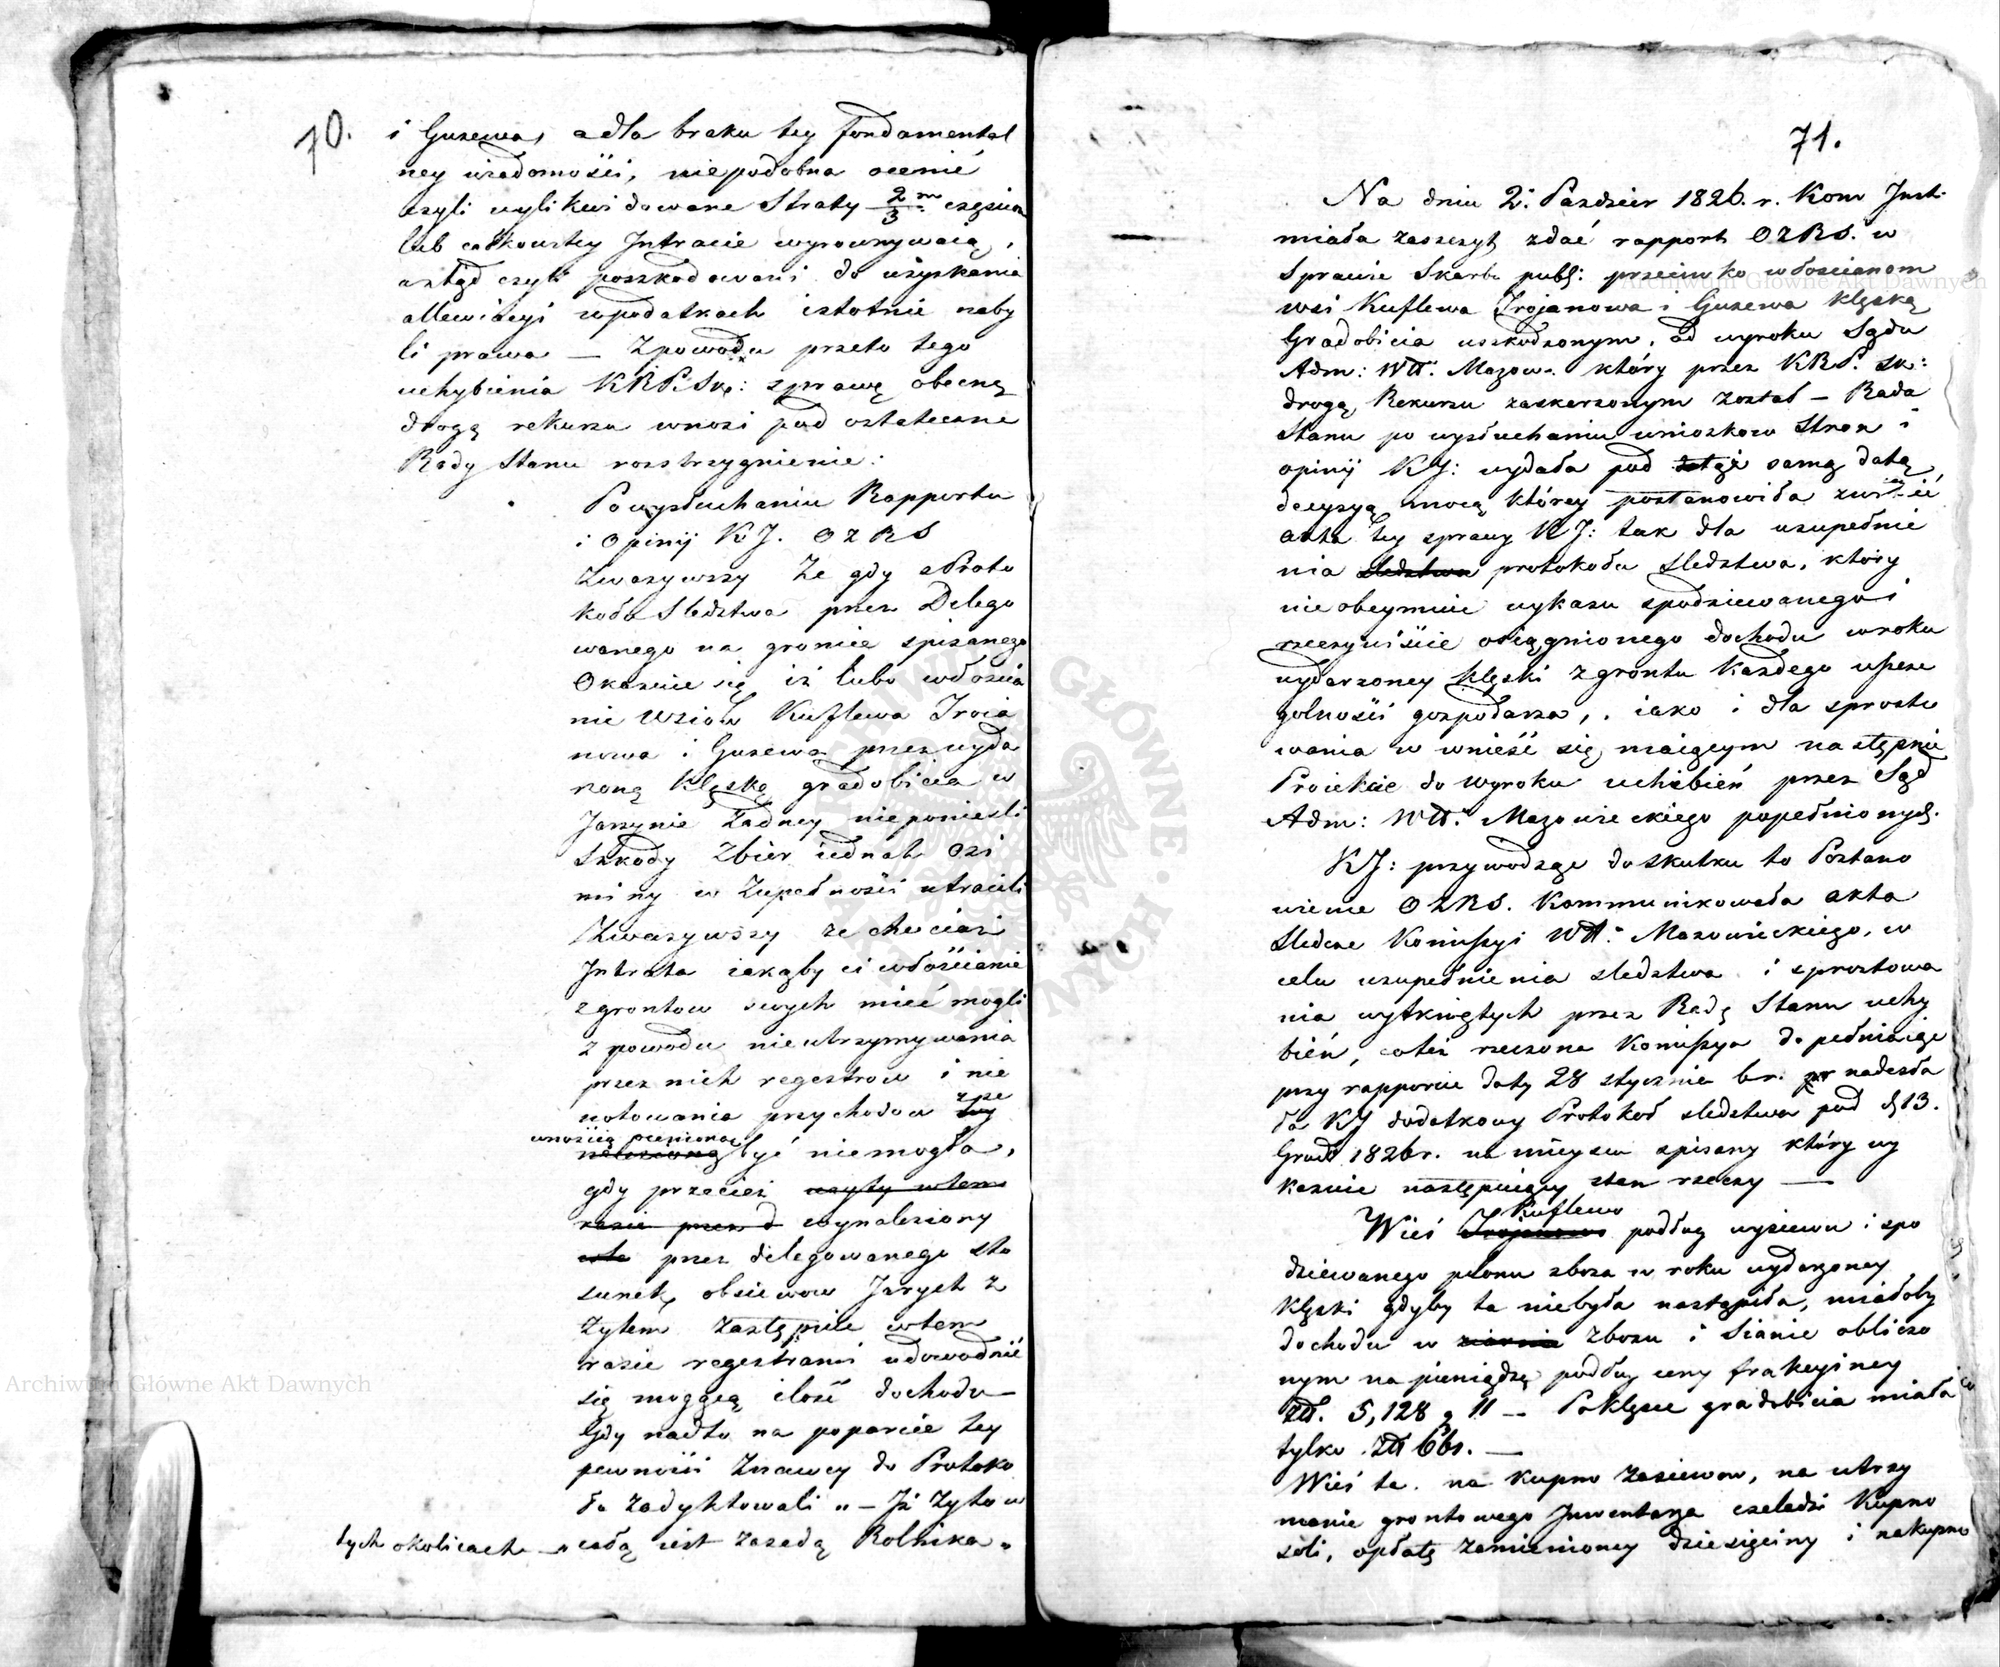 70.
i Guzewa, a dla braku tey fondamental
ney wiadomości, niepodobna ocenić
czyli wylikwidowane Straty 2/3 m częściom
lub całkowitey Intracie wyrownywaią,
a ztąd czyli poszkodowani do uzyskania
allewiacyi w podatkach istotnie naby
li prawa — Z powodu przeto tego
uchybienia KRPiSk: sprawę obecną
drogą rekursu wnosi pod ostateczne
Rady Stanu rozstrzygnienie:
Po wysłuchaniu Rapportu
i Opinij KJ. OZRS
Zważywszy że gdy z Proto
kołu Sledztwa przez Delego
wanego na groncie spisanego
Okazuie się iż lubo włościa
nie Wsiow Kuflewa Troia
nowa i Guzewa przez wyda
rzoną Klęskę gradobicia w
Jarzynie żadney nieponieśli
szkody Zbior iednak Ozi
miny w Zupełności utracili
Zważywszy że chociaż
Intrata iakąby ci włościanie
z grontow swych mieć mogli
z powodu nieutrzymywania
przez nich regestrow i nie
notowania przychodow z pe
wnością ocenioną być niemogła,
gdy przecież użyty w tem
razie przez d wynaleziony
przez delegowanego sto
sunek obsiewow Jarych z
żytem zastępuie w tem
razie regestrami udowodnić
się mogącą ilość dochodu —
Gdy nadto na poparcie tey
pewności Znawcy do Protoko
łu zadyktowali „ — Iż żyto w
tych okolicach — całą iest zasadą Rolnika „
71.
Na dniu 2. Pazdzier 1826. r. Kom Just.
miała zaszczyt zdać rapport OZRS. w
Sprawie Skarbu publ: przeciwko włościanom
wsi Kuflewa Trojanowa i Guzewa klęską
Gradobicia uszkodzonym, od wyroku Sądu
Adm: Wtt. Mazow. który przez KRP. Sk:
drogą Rekursu zaskarzonym został — Rada
Stanu po wysłuchaniu wnioskow Stron i
opinij KJ: wydała pod tąż samą datą
decyzyą mocą którey postanowiła zwrocić
akta tey sprawy KJ: tak dla uzupełnie
nia sledztwa protokołu sledztwa, który
nie obeymuie wykazu spodziewanego i
rzeczywiście osiągnionego dochodu w roku
wydarzoney klęski z grontu każdego w szcze
golności gospodarza, iako i dla sprosto
wania w wnieść się maiącym następnie
Proiekcie do wyroku uchibień przez Sąd
Adm: Wtt. Mazowieckiego popełnionych.
KJ: przywodząc do skutku to Postano
wienie OZRS. Kommunikowała akta
sledcze Komissyi Wtt. Mazowieckiego, w
celu uzupełnienia sledztwa i sprostowa
nia wytkniętych przez Radę Stanu uchy
bień, coteż rzeczona Komissya dopełniaiąc
przy rapporcie daty 28 stycznia br. nadesła
ła KJ dodatkowy Protokoł sledztwa pod d 13.
Grud 1826 r. na mieyscu spisany który wy
kazuie następuiący stan rzeczy —
Wieś Trojanow Kuflewo podług wysiewu i spo
dziewanego plonu zboża w roku wydarzoney
Klęski gdyby ta niebyła nastąpiła, miałaby
dochodu w ziarnie zbożu i sianie obliczo
nym na pieniądze podług ceny frakcyiney
Ztt. 5,128 g 11 — Po klęsce gradobicia miała
tylko Ztt 661. —
Wieś ta. na kupno zasiewow, na utrzy
manie grontowego Inwentarza czeladzi Kupno
soli, opłatę zamienioney dziesięciny i nakupno
Archiwum Główne Akt Dawnych
Archiwum Główne Akt Dawnych
ARCHIWUM GŁÓWNE AKT DAWNYCH